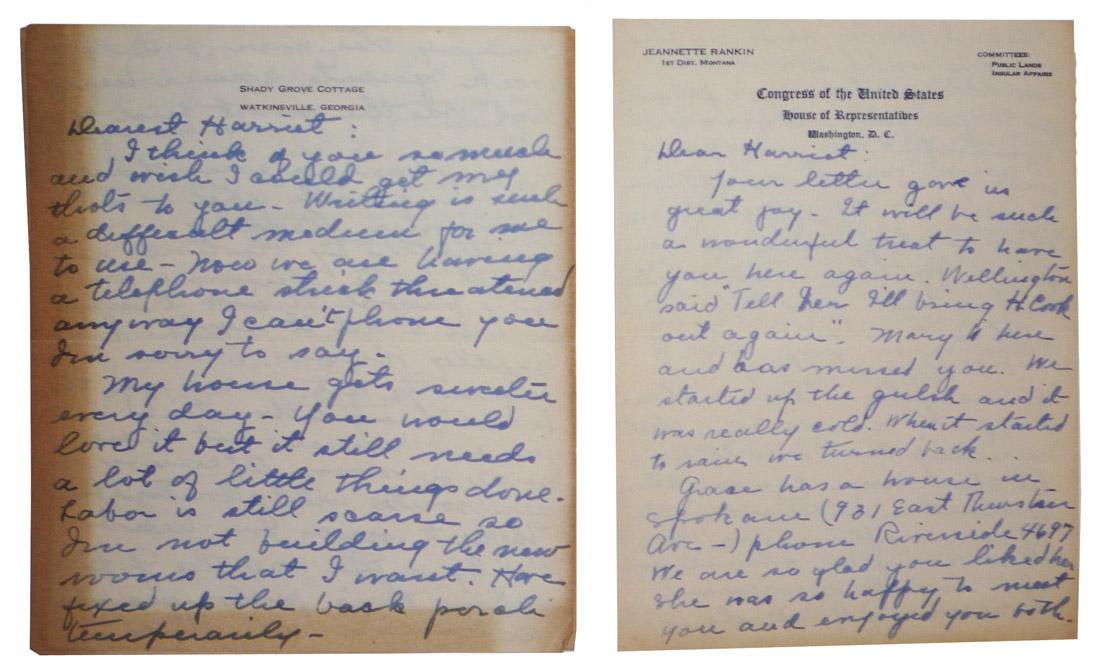 SHADY GROVE COTTAGE
WATKINSVILLE, GEORGIA
Dearest Harriet:
I think of you so much
and wish I could get my
thots to you - Writing is such
a difficult medium for me
to use - Now we are having
a telephone strick threatened
anyway I can't phone you
I'm sorry to say.
My house gets sweeter
every day - You would
love it but it still needs
a lot of little things done.
Labor is still scarse so
I'm not building the new
rooms that I want. Have
fixed up the back porch
temperarily -
JEANNETTE RANKIN
1ST DIST. MONTANA
COMMITTEES:
PUBLIC LANDS
INSULAR AFFAIRS
Congress of the United States
House of Representatives
Washington, D. C.
Dear Harriet:
Your letter gave us
great joy - It will be such
a wonderful treat to have
you here again. Wellington
said "Tell her I'll bring H. Cook
out again". Mary is here
and has missed you. We
started up the gulch and it
was really cold. When it started
to rain we turned back.
Grace has a house in
Spokane (931 East Thurston
Ave -) phone Riverside 4697
We are so glad you liked her
She was so happy to meet
you and enjoyed you both.